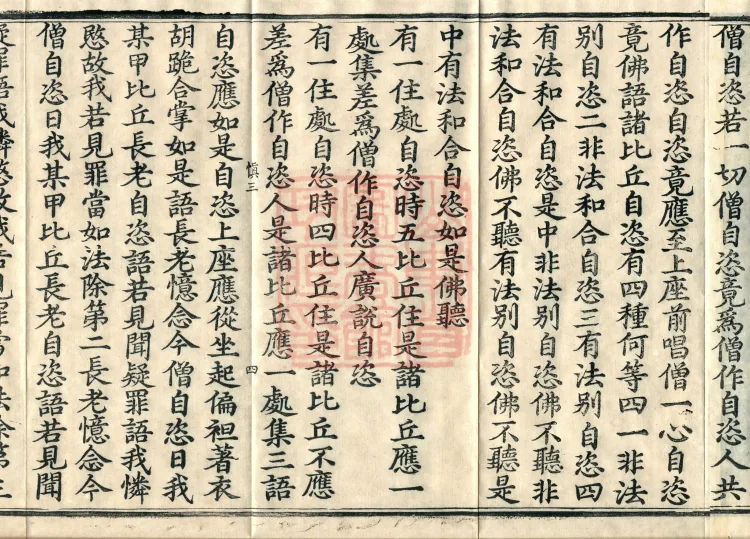 僧自恣若一切僧自恣竟爲僧作自恣人共
作自恣自恣竟應至上座前唱僧一心自恣
竟佛語諸比丘自恣有四種何等四一非法
別自恣二非法和合自恣三有法別自恣四
有法和合自恣是中非法別自恣佛不聽非
法和合自恣佛不聽有法別自恣佛不聽是
中有法和合自恣如是佛聽
有一住處自恣時五比丘住是諸比丘應一
處集差爲僧作自恣人廣說自恣
有一住處自恣時四比丘住是諸比丘不應
差爲僧作自恣人是諸比丘應一處集三語
愼三 四
自恣應如是自恣上座應從坐起偏袒著衣
胡跪合掌如是語長老憶念今僧自恣日我
某甲比丘長老自恣語若見聞疑罪語我憐
愍故我若見罪當如法除第二長老憶念今
僧自恣日我某甲比丘長老自恣語若見聞
疑罪語我憐愍故我若見罪當如法除第三